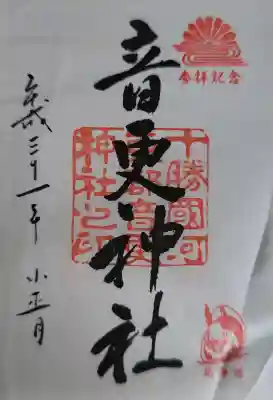 参拝記念
音更神社
十勝國河
東郡音更
神社之印
平成三十一年 小正月